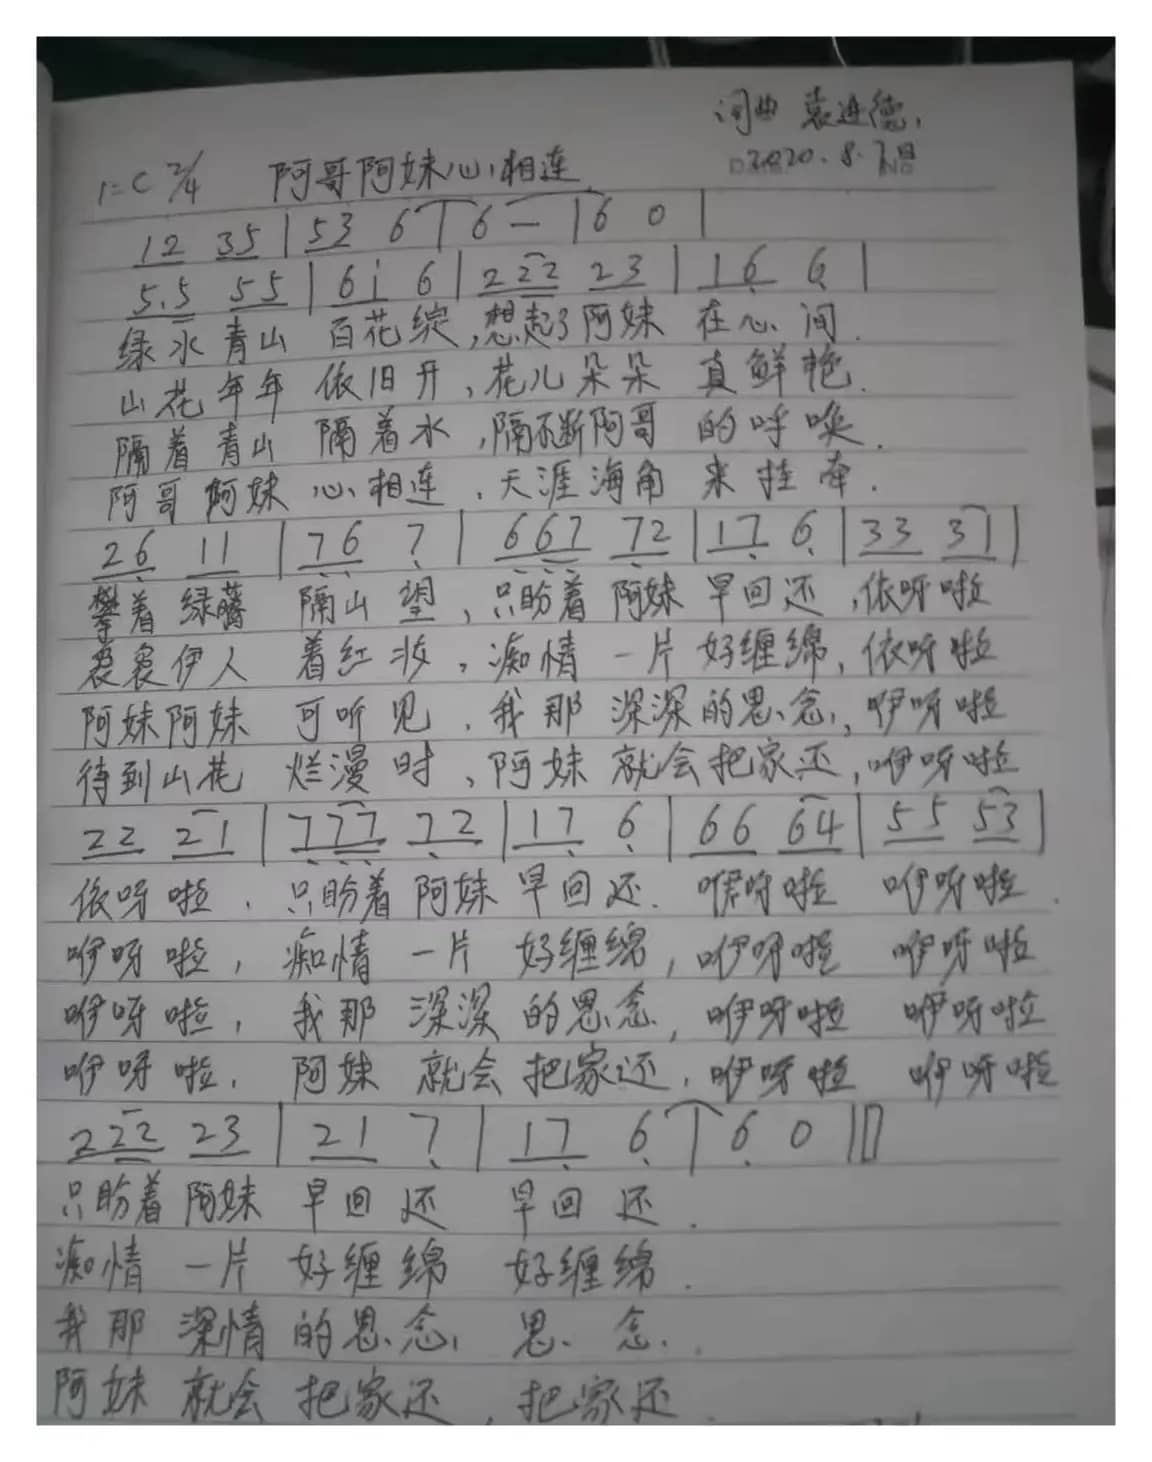 词曲 袁进德,
2020.8.7日
1=C 2/4 阿哥阿妹心相连
12 35 | 53 6 | 6 — | 6 0 |
5.5 55 | 6i 6 | 222 23 | 16 6 |
绿水青山 百花绽,想起了阿妹 在心间.
山花年年 依旧开,花儿朵朵 真鲜艳.
隔着青山 隔着水,隔不断阿哥 的呼唤.
阿哥阿妹 心相连,天涯海角 来挂牵.
26 11 | 76 7 | 667 72 | 17 6 | 33 31 |
攀着绿藤 隔山望,只盼着阿妹 早回还,依呀啦
袅袅伊人 着红妆,痴情一片 好缠绵,依呀啦
阿妹阿妹 可听见,我那深深的思念,咿呀啦
待到山花 烂漫时,阿妹就会把家还,咿呀啦
22 21 | 777 72 | 17 6 | 66 64 | 55 53 |
依呀啦,只盼着阿妹 早回还. 咿呀啦 咿呀啦.
咿呀啦,痴情一片 好缠绵,咿呀啦 咿呀啦
咿呀啦,我那深深的思念,咿呀啦 咿呀啦
咿呀啦,阿妹就会把家还,咿呀啦 咿呀啦
222 23 | 21 7 | 17 6 | 6 0 ‖
只盼着阿妹 早回还 早回还.
痴情一片 好缠绵 好缠绵.
我那深情的思念, 思念.
阿妹就会把家还,把家还.